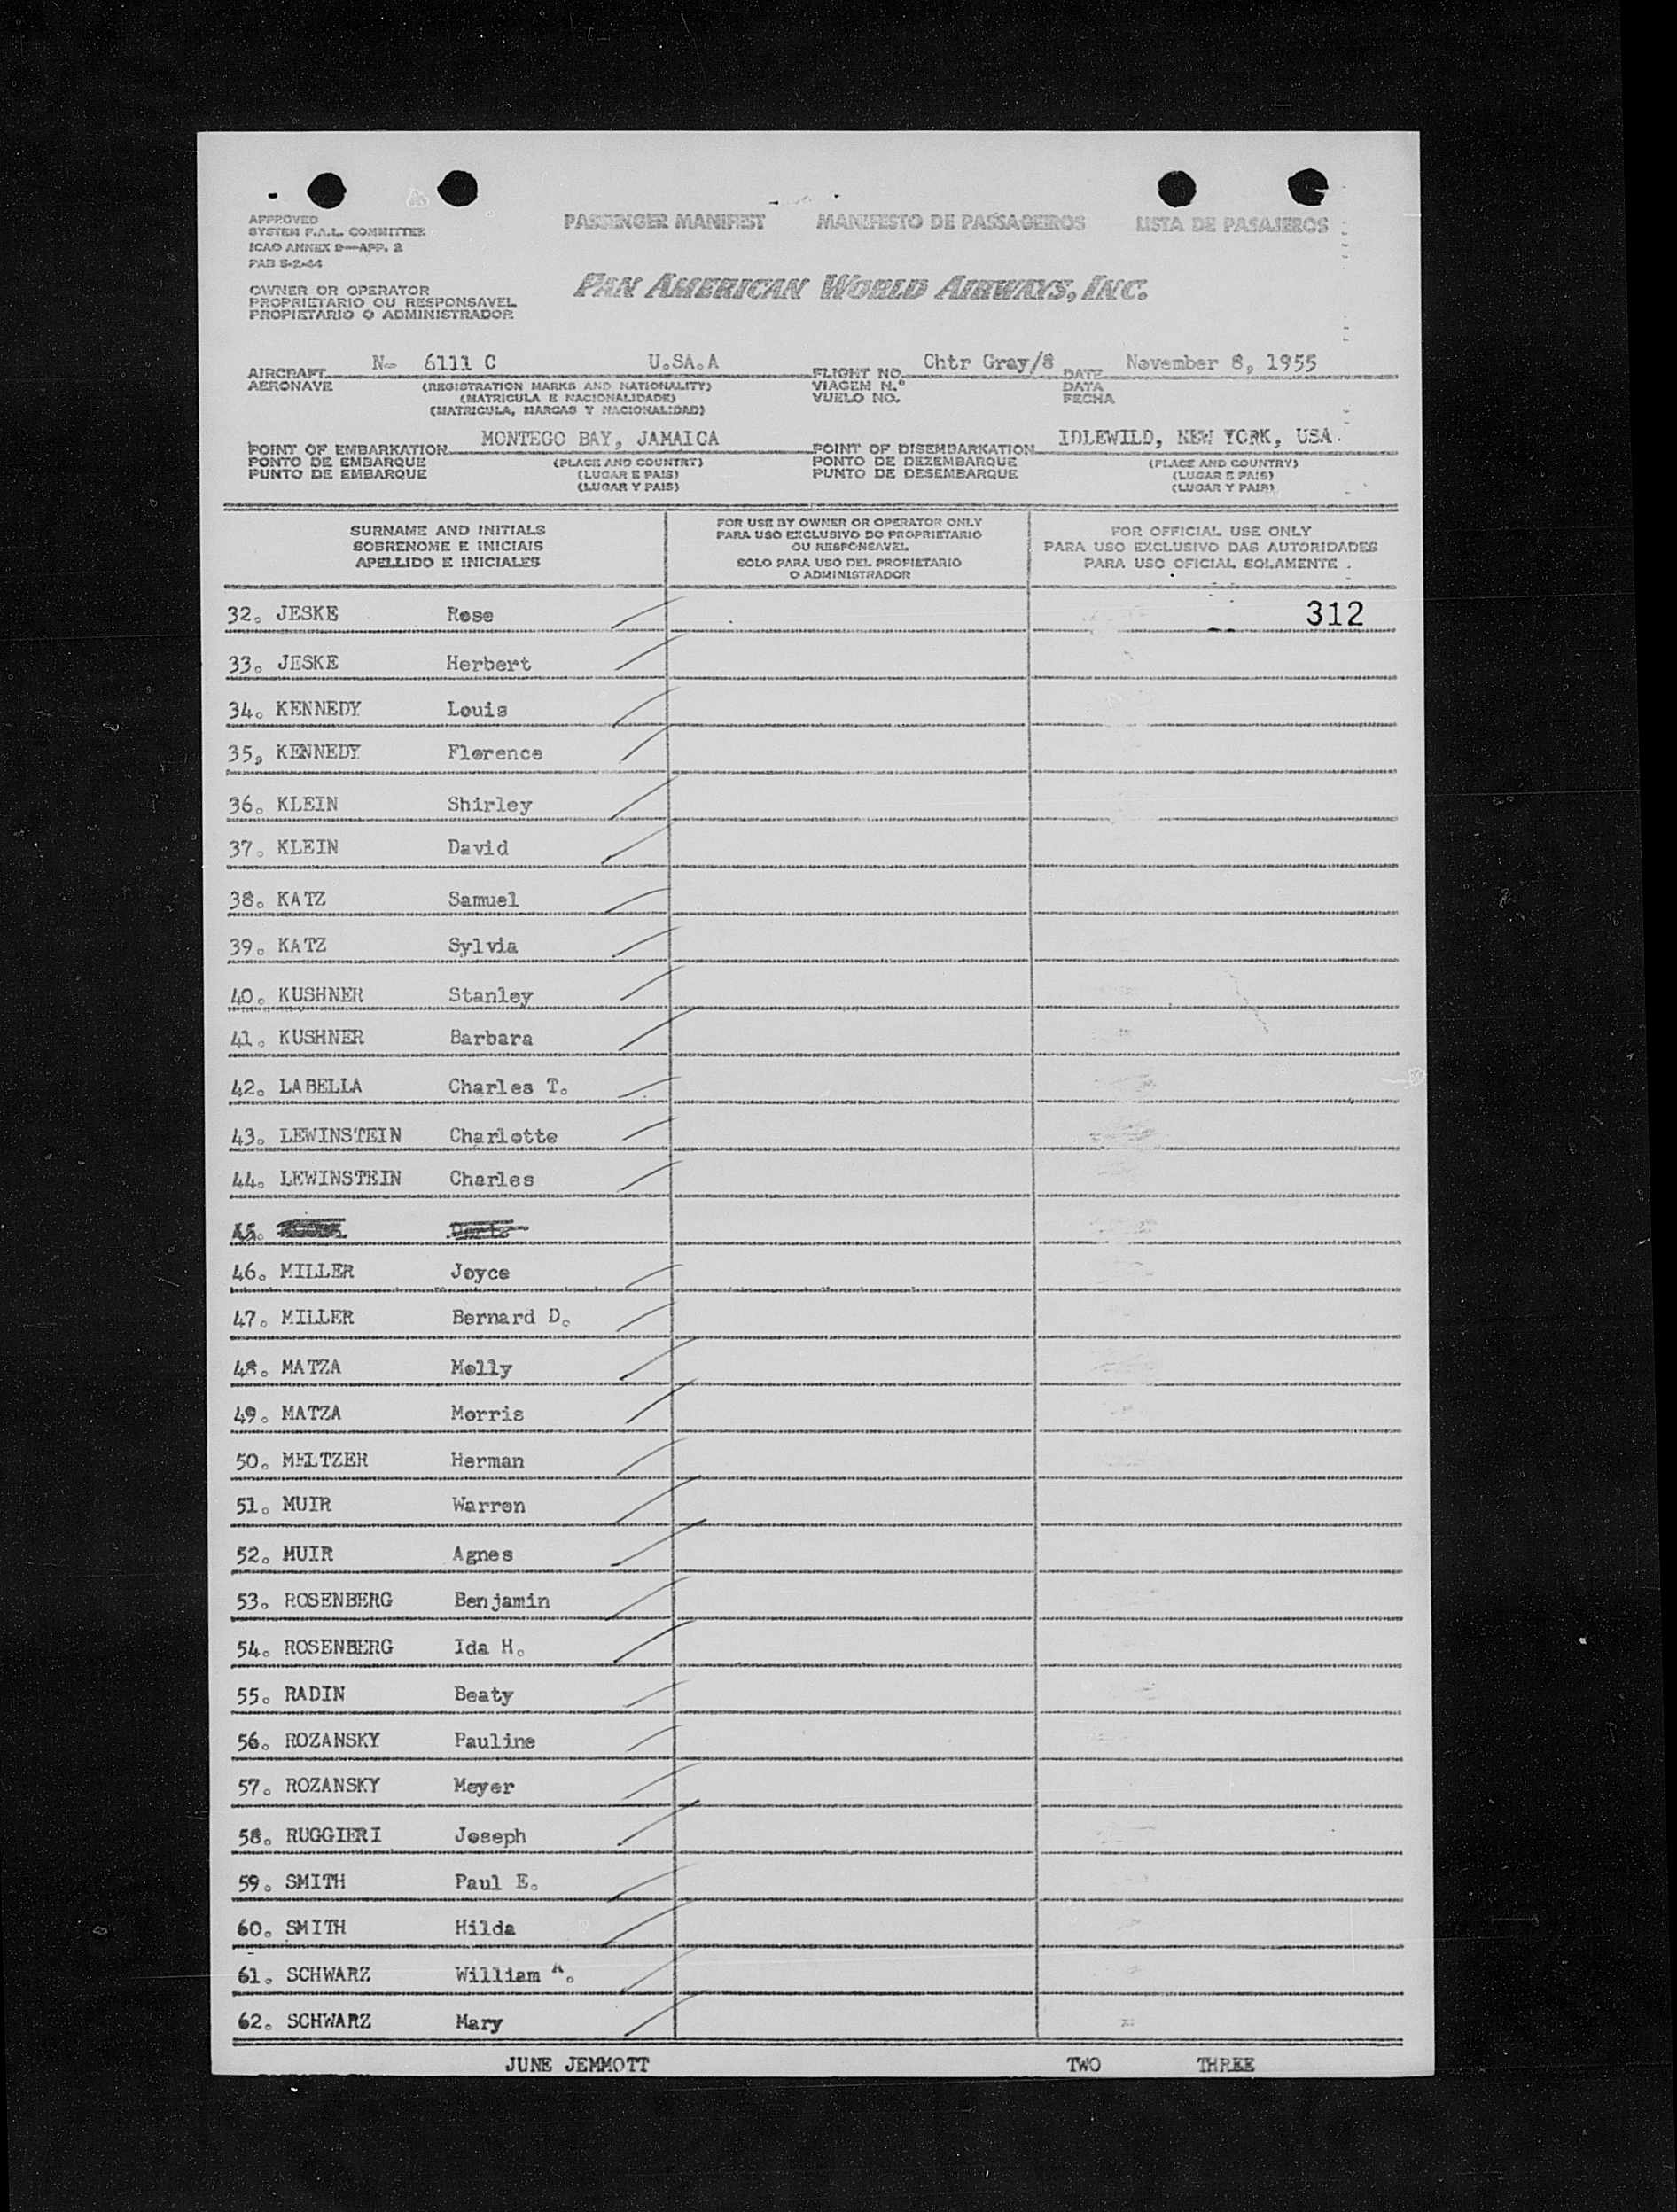 APPROVED
SYSTEM F.A.L. COMMITTEE
ICAO ANNEX 9—APP. 2
PAB 5-2-44
PASSENGER MANIFEST MANIFESTO DE PASSAGEIROS LISTA DE PASAJEROS
OWNER OR OPERATOR
PROPRIETARIO OU RESPONSAVEL
PROPIETARIO O ADMINISTRADOR
PAN AMERICAN WORLD AIRWAYS, INC.
AIRCRAFT N- 6111 C U.SA.A FLIGHT NO. Chtr Gray/8 DATE November 8, 1955
AERONAVE (REGISTRATION MARKS AND NATIONALITY) VIAGEM N.º DATA
(MATRICULA E NACIONALIDADE) VUELO NO. FECHA
(MATRICULA, MARCAS Y NACIONALIDAD)
POINT OF EMBARKATION MONTEGO BAY, JAMAICA POINT OF DISEMBARKATION IDLEWILD, NEW YORK, USA.
PONTO DE EMBARQUE (PLACE AND COUNTRY) PONTO DE DEZEMBARQUE (PLACE AND COUNTRY)
PUNTO DE EMBARQUE (LUGAR E PAIS) PUNTO DE DESEMBARQUE (LUGAR E PAIS)
(LUGAR Y PAIS) (LUGAR Y PAIS)
SURNAME AND INITIALS
SOBRENOME E INICIAIS
APELLIDO E INICIALES
FOR USE BY OWNER OR OPERATOR ONLY
PARA USO EXCLUSIVO DO PROPRIETARIO
OU RESPONSAVEL
SOLO PARA USO DEL PROPIETARIO
O ADMINISTRADOR
FOR OFFICIAL USE ONLY
PARA USO EXCLUSIVO DAS AUTORIDADES
PARA USO OFICIAL SOLAMENTE
32. JESKE Rose 312
33. JESKE Herbert
34. KENNEDY Louis
35, KENNEDY Florence
36. KLEIN Shirley
37. KLEIN David
38. KATZ Samuel
39. KATZ Sylvia
40. KUSHNER Stanley
41. KUSHNER Barbara
42. LABELLA Charles T.
43. LEWINSTEIN Charlotte
44. LEWINSTEIN Charles
45.
46. MILLER Joyce
47. MILLER Bernard D.
48. MATZA Molly
49. MATZA Morris
50. MELTZER Herman
51. MUIR Warren
52. MUIR Agnes
53. ROSENBERG Benjamin
54. ROSENBERG Ida H.
55. RADIN Beaty
56. ROZANSKY Pauline
57. ROZANSKY Meyer
58. RUGGIERI Joseph
59. SMITH Paul E.
60. SMITH Hilda
61. SCHWARZ William
62. SCHWARZ Mary
JUNE JEMMOTT TWO THREE